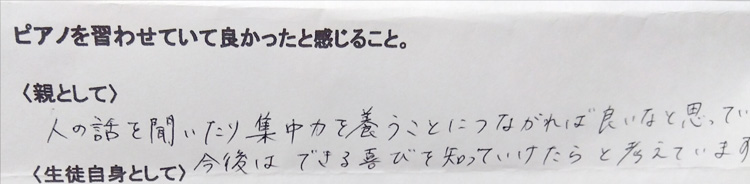 ピアノを習わせていて良かったと感じること。
〈親として〉
人の話を聞いたり集中力を養うことにつながれば良いなと思ってい
今後はできる喜びを知っていけたらと考えています
〈生徒自身として〉